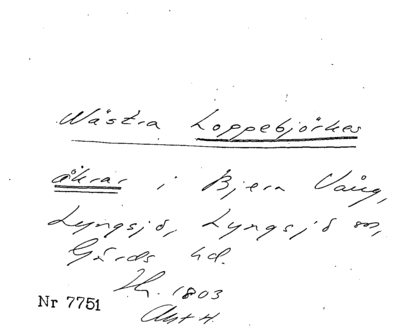 Wästra Loppebjörkes
åkrar i Bjera Vång,
Lyngsjö, Lyngsjö sn,
Gärds hd.
1803
Akt 4.
Nr 7751